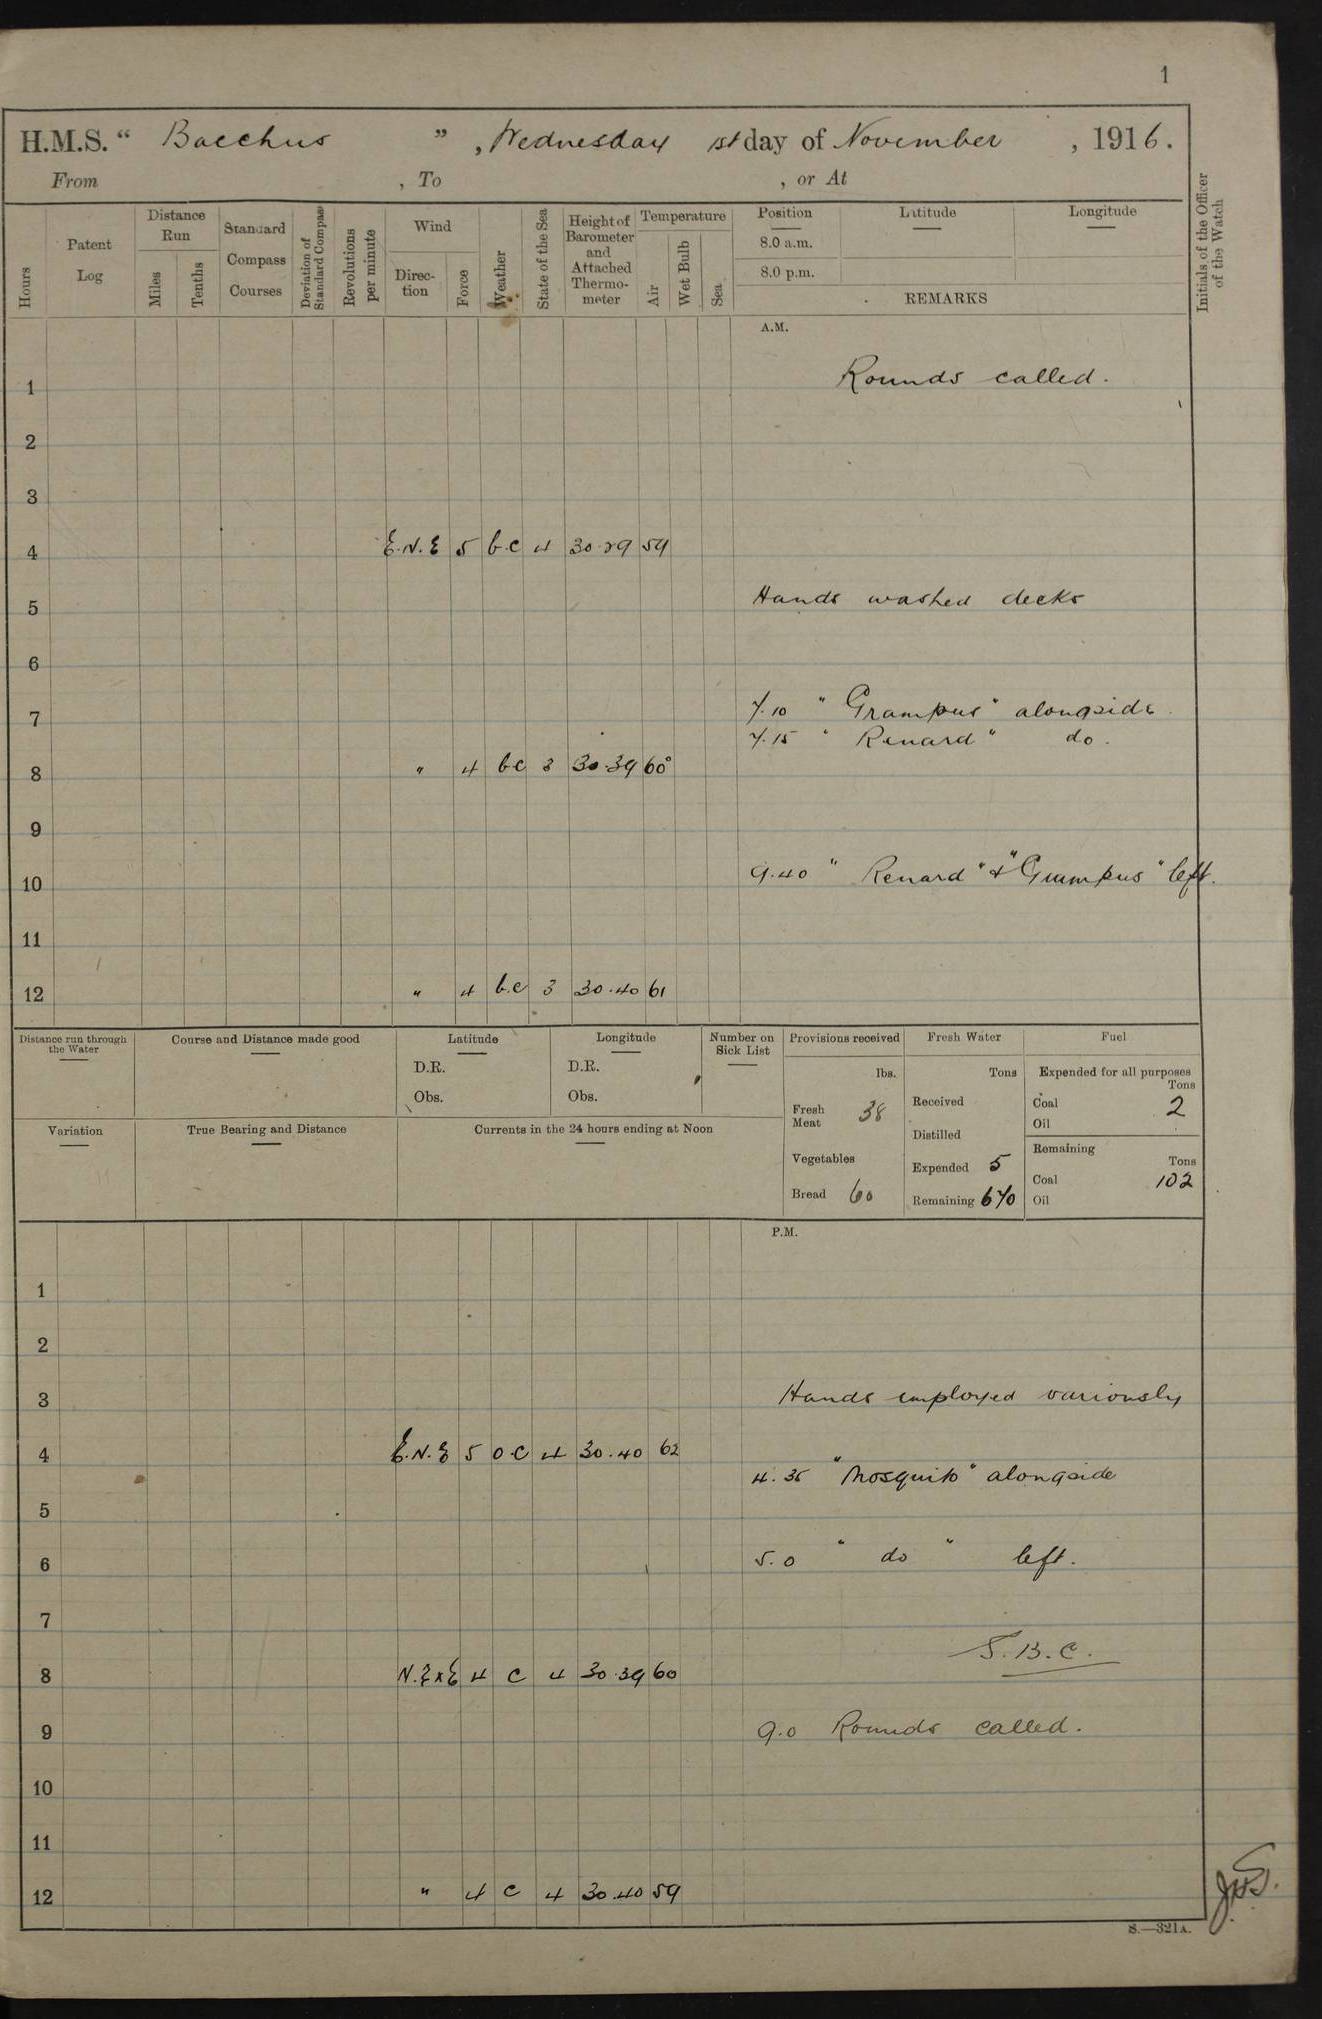 1
H.M.S. “ Bacchus ” , Wednesday 1st day of November , 1916.
From , To , or At
Hours
Patent Log
Distance Run
Miles
Tenths
Standard Compass Courses
Deviation of Standard Compass
Revolutions per minute
Wind
Direction
Force
Weather
State of the Sea
Height of Barometer and Attached Thermometer
Temperature
Air
Wet Bulb
Sea
Position
Latitude
Longitude
8.0 a.m.
8.0 p.m.
REMARKS
Initials of the Officer of the Watch
A.M.
1 Rounds called.
2
3
4 E.N.E 5 b.c 4 30.29 59
5 Hands washed decks
6
7 7.10 " Grampus " alongside
7.15 " Renard " do.
8 " 4 bc 3 30.39 60°
9
10 9.40 " Renard " & " Grampus " left.
11
12 " 4 b.c 3 30.40 61
Distance run through the Water
Course and Distance made good
Latitude
D.R.
Obs.
Longitude
D.R.
Obs.
Number on Sick List
Provisions received
lbs.
Fresh Meat 38
Vegetables
Bread 60
Fresh Water
Tons
Received
Distilled
Expended 5
Remaining 670
Fuel
Expended for all purposes
Tons
Coal 2
Oil
Remaining
Tons
Coal 102
Oil
Variation
True Bearing and Distance
Currents in the 24 hours ending at Noon
P.M.
1
2
3 Hands employed variously
4 E.N.E 5 o.c 4 30.40 62
4.35 " Mosquito " alongside
5
6 5.0 " do " left.
7
S.B.C.
8 N.ExE 4 c 4 30.39 60
9 9.0 Rounds called.
10
11
12 " 4 c 4 30.40 59
S.—321A.